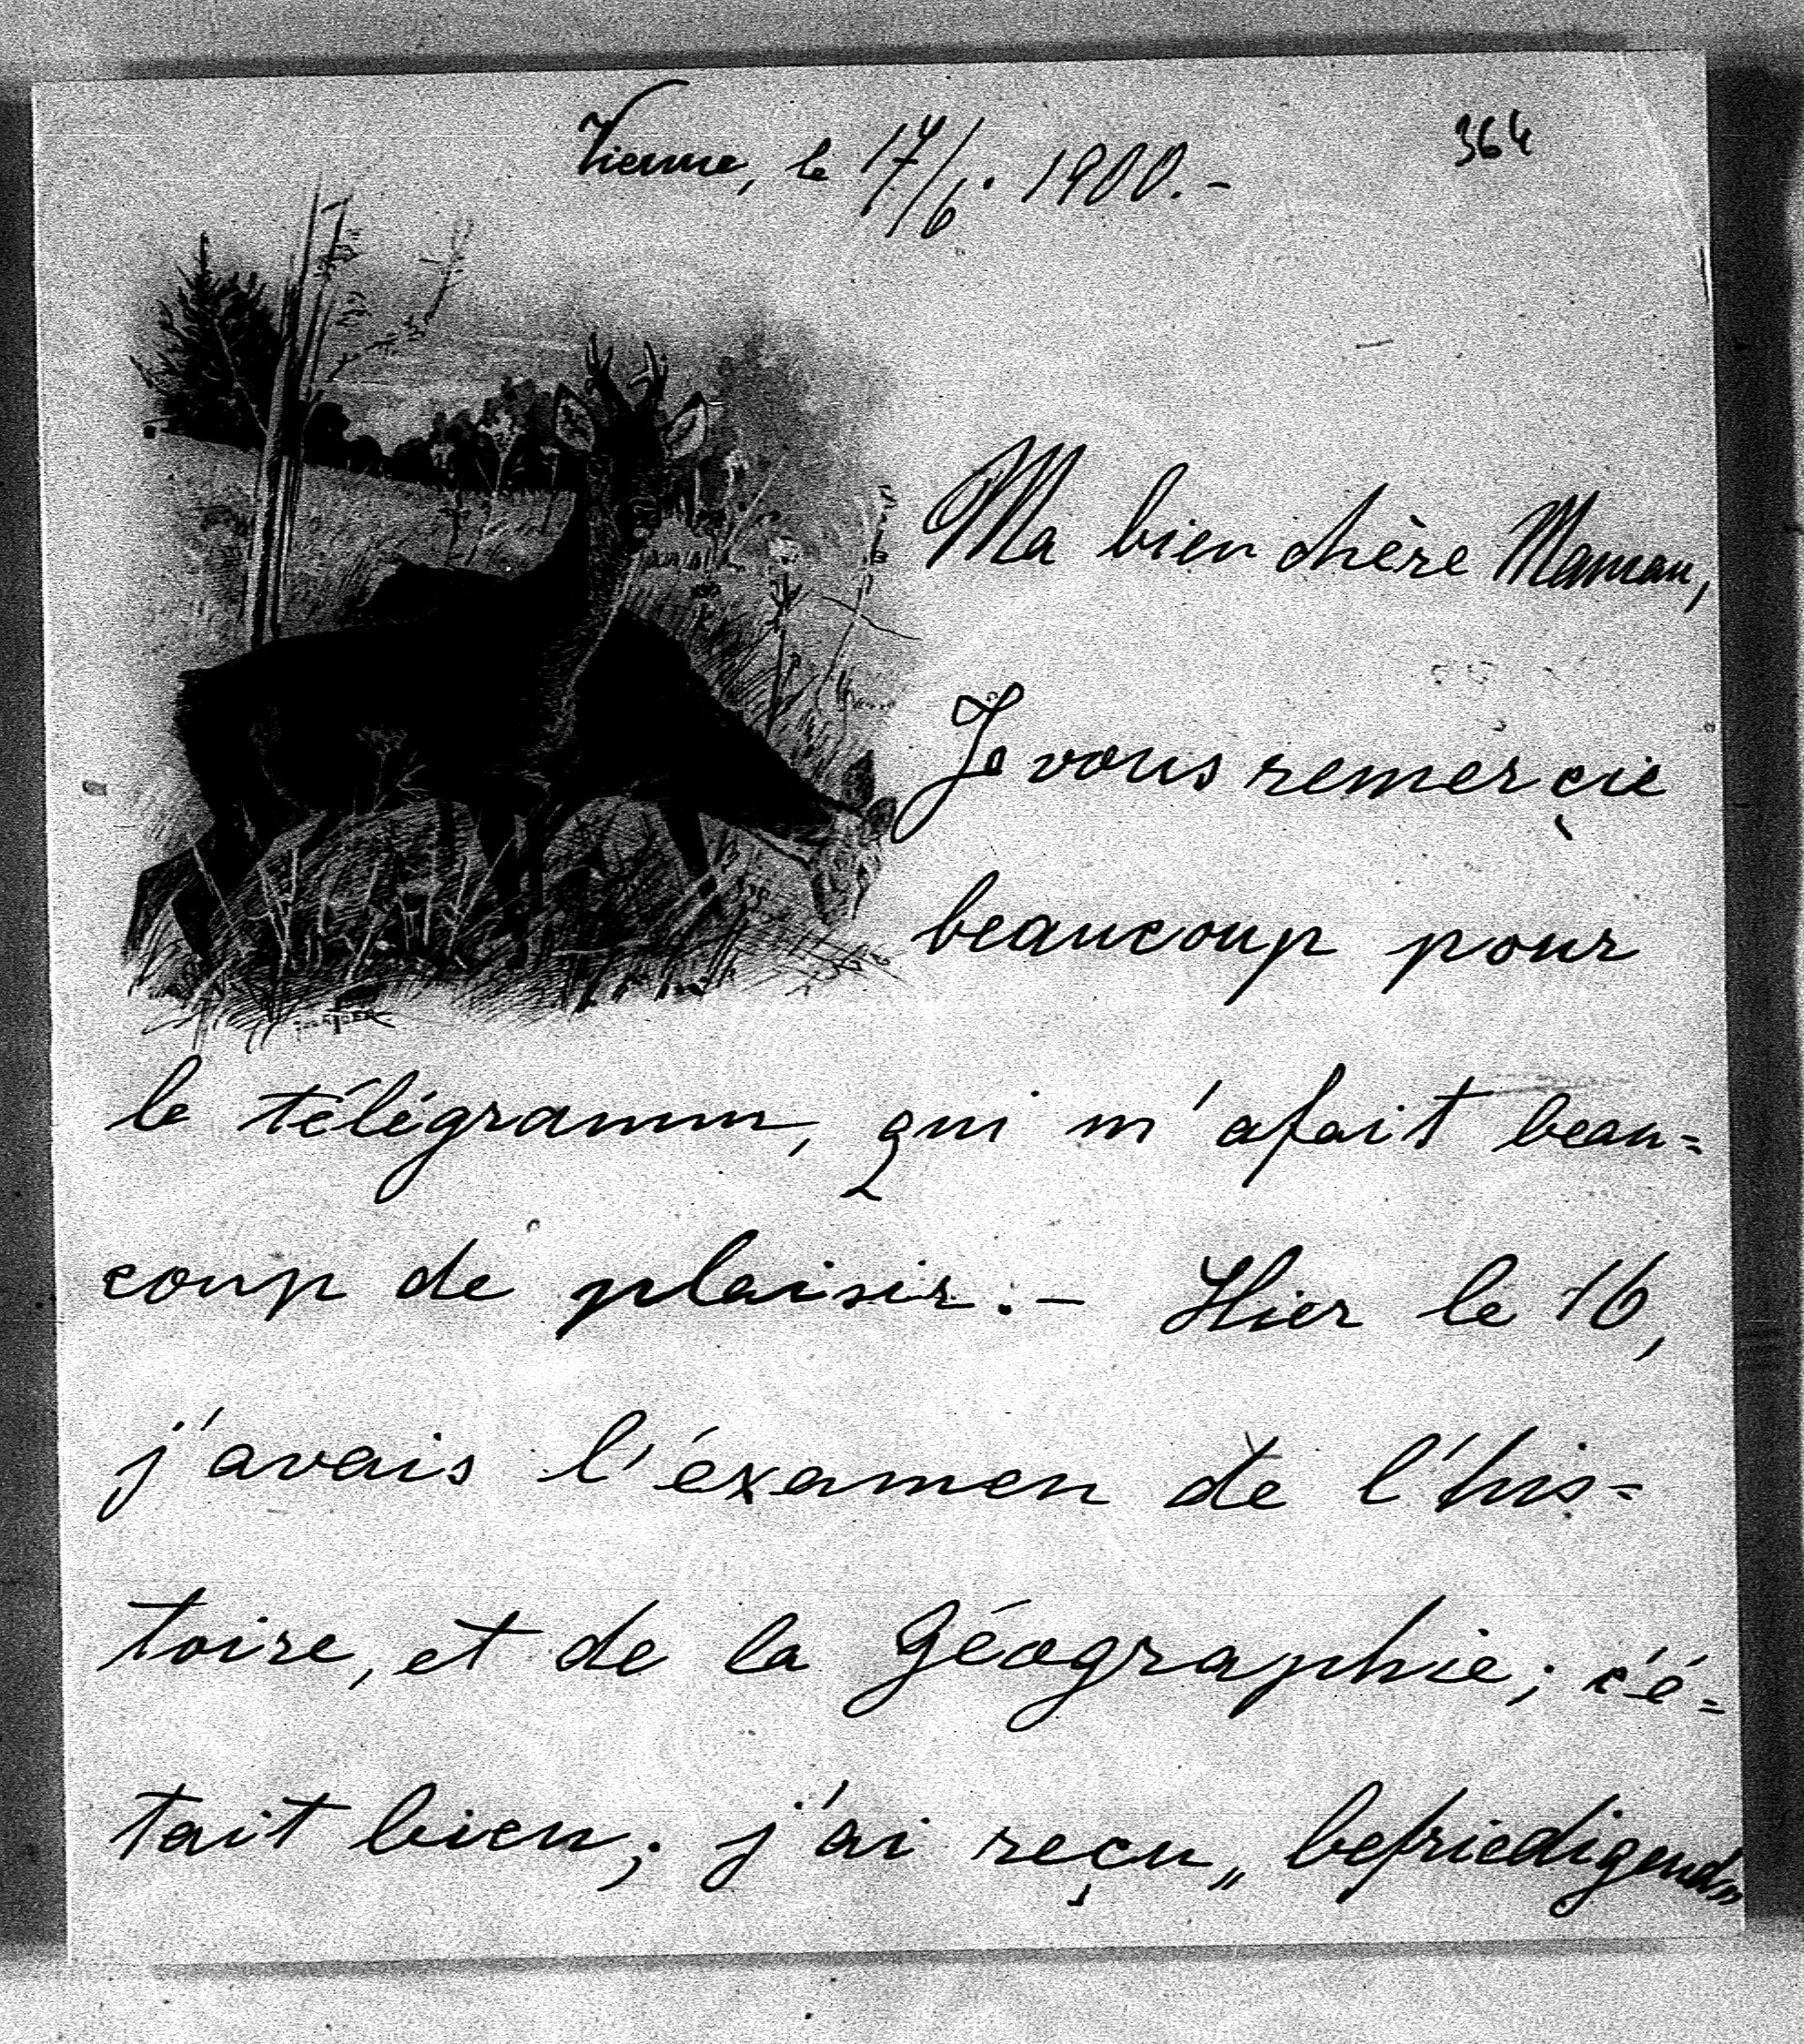 Vienne, le 17/6. 1900.-
364
Ma bien chère Maman,
Je vous remerçie
beaucoup pour
le télégramm, qui m'afait beau=
coup de plaisir.- Hier le 16,
j'avais l'éxamen de l'his=
toire, et de la Géographie; c'é=
tait bien; j'ai reçu „befriedigend„